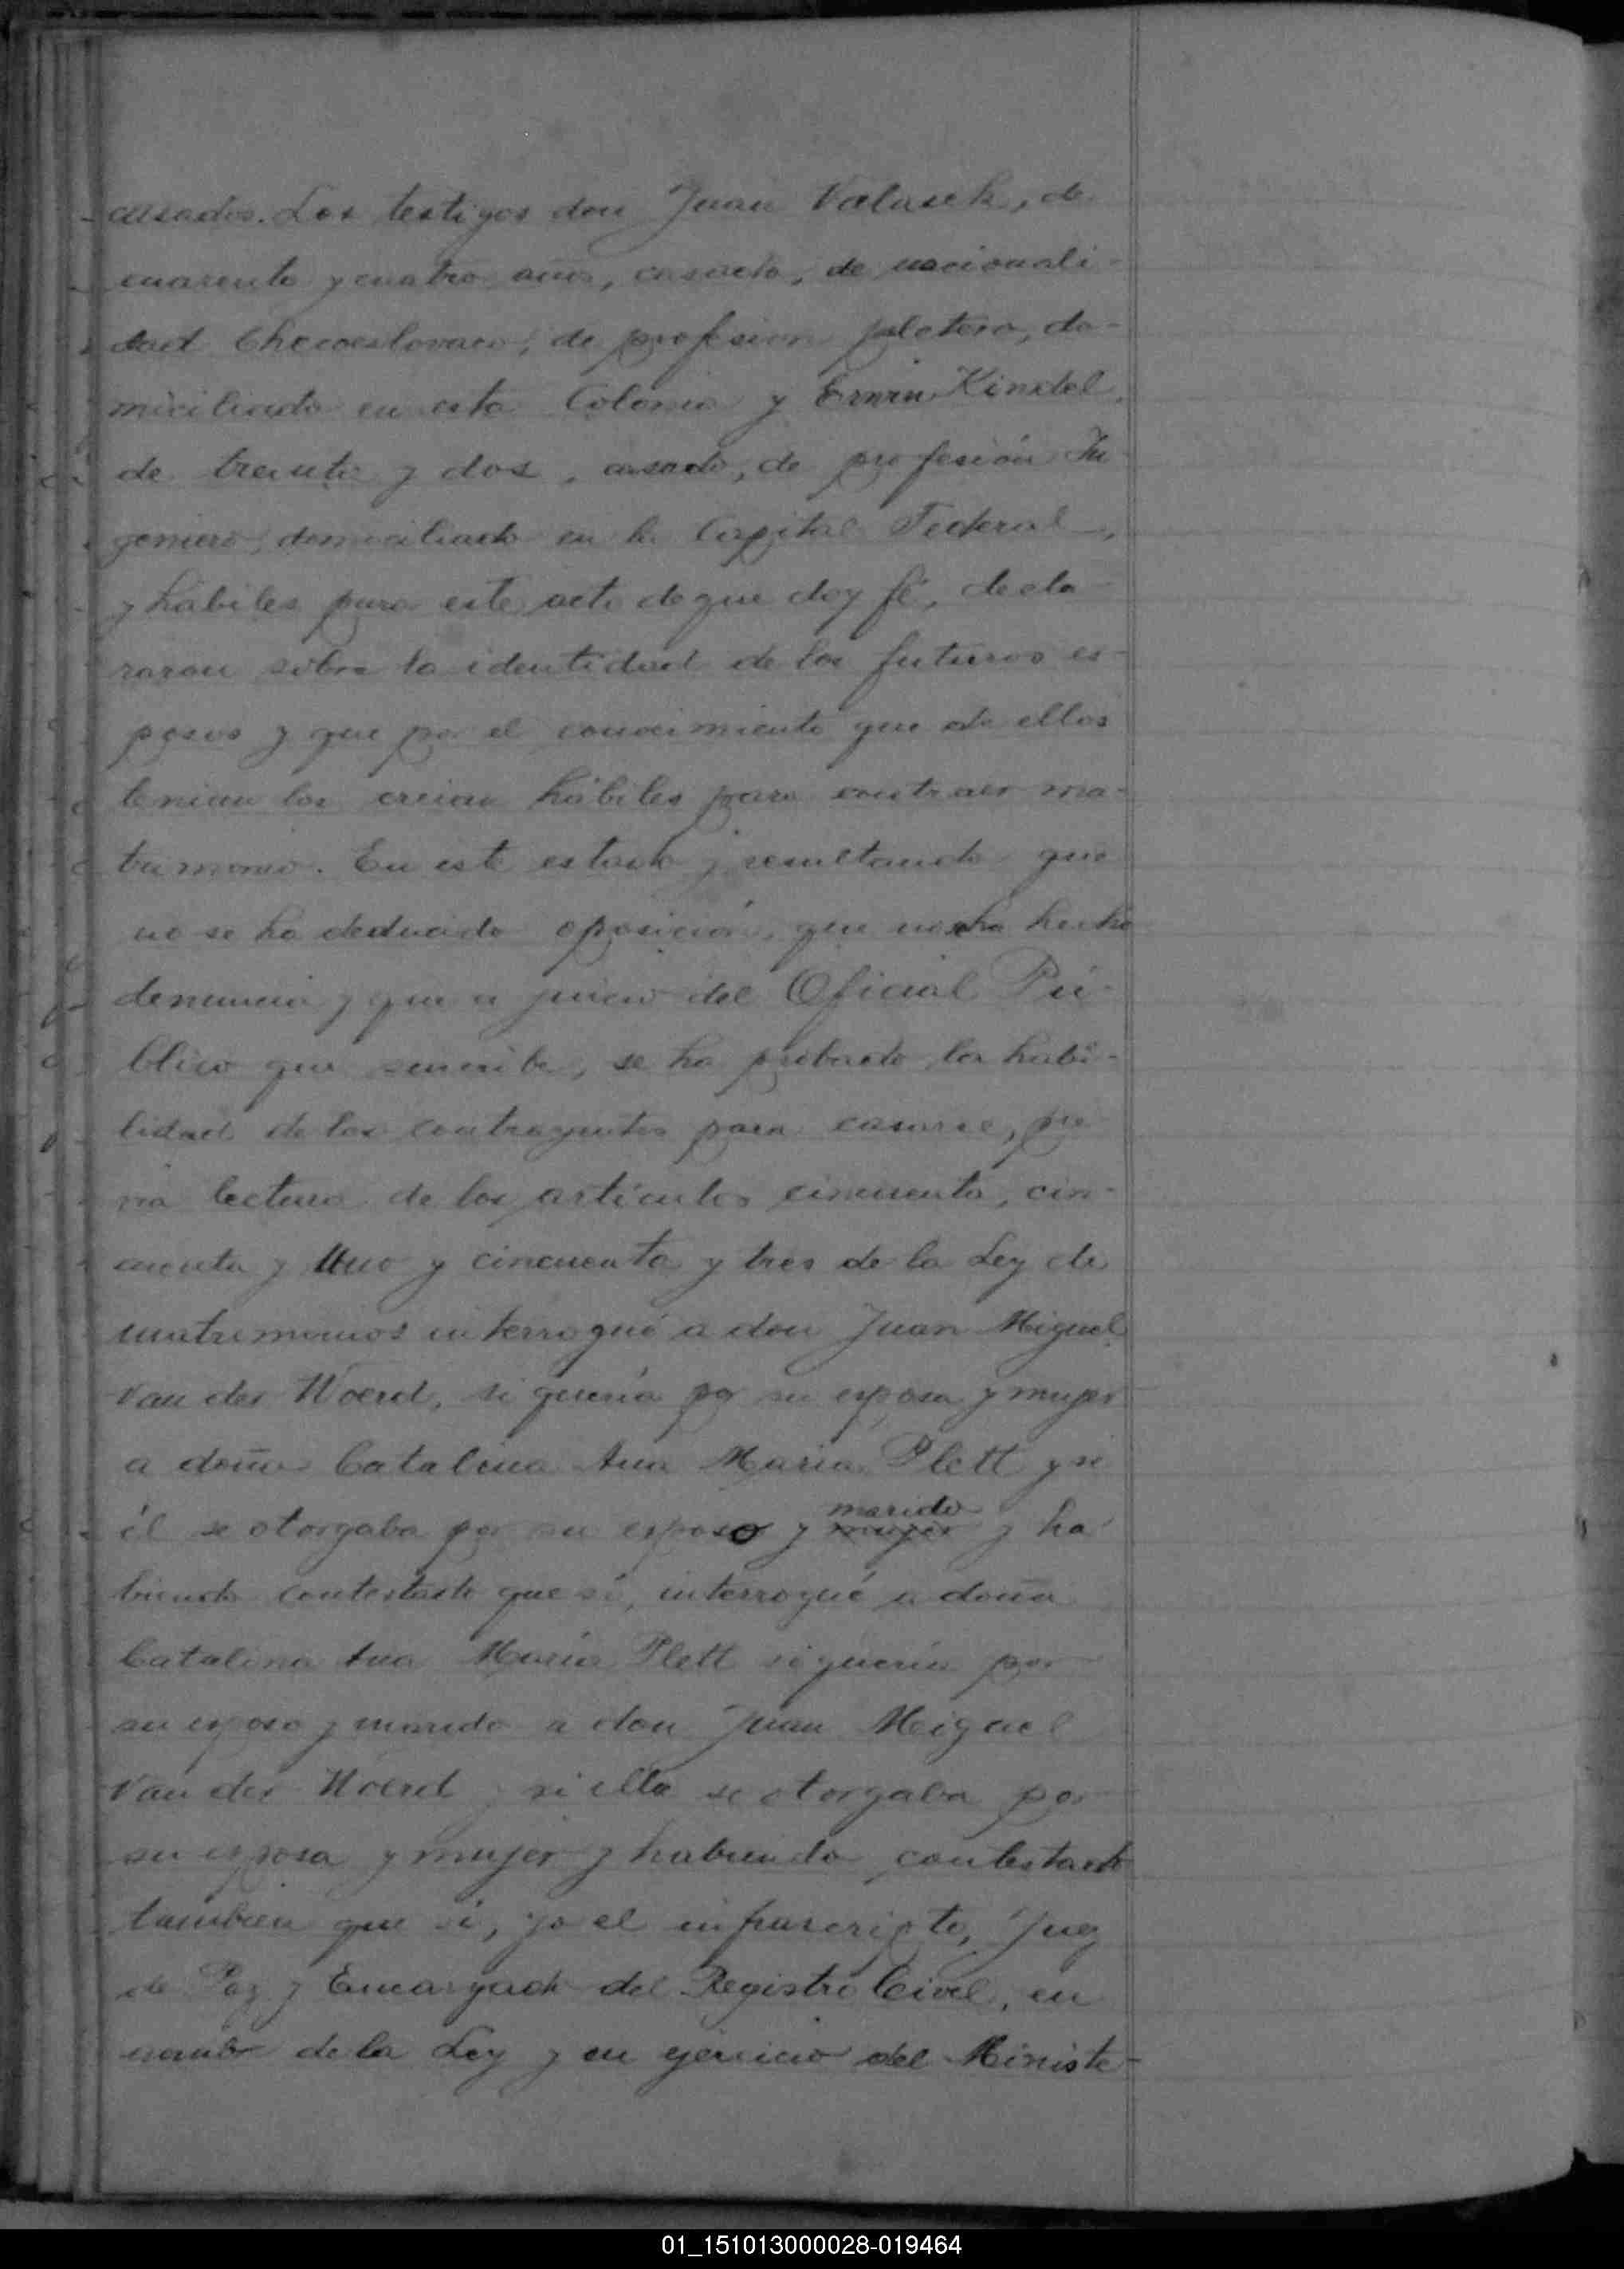 casados. Los testigos don Juan Valasek, de
cuarenta y cuatro años, casado, de nacionali-
dad Checoeslovaco, de profesion platero, do-
miciliado en esta Colonia y Erwin Kindel,
de treinta y dos, casado, de profesión In
geniero, domiciliado en la Capital Federal,
y hábiles para este acto de que doy fé, decla-
raron sobre la identidad de los futuros es-
posos y que por el conocimiento que de ellos
tenian los creian hábiles para contraer ma-
trimonio. En este estado y resultando que
no se ha deducido oposición, que no se ha hecho
denuncia y que a juicio del Oficial Pú-
blico que suscribe, se ha probado la habi-
lidad de los contrayentes para casarse, pre
via lectura de los artículos cincuenta, cin-
cuenta y uno y cincuenta y tres de la Ley de
matrimonios interrogué a don Juan Miguel
Van der Woerd, si quería por su esposa y mujer
a doña Catalina Ana Maria Plett y si
él se otorgaba por su esposo y mujer marido y ha
biendo contestado que sí, interrogué a doña
Catalina Ana María Plett si quería por
su esposo y marido a don Juan Miguel
Van der Woerd y si ella se otorgaba por
su esposa y mujer y habiendo contestado
tambien que sí, yo el infrascripto, Juez
de Paz y Encargado del Registro Civil, en
nombre de la Ley y en ejercicio del Ministe-
01_151013000028-019464